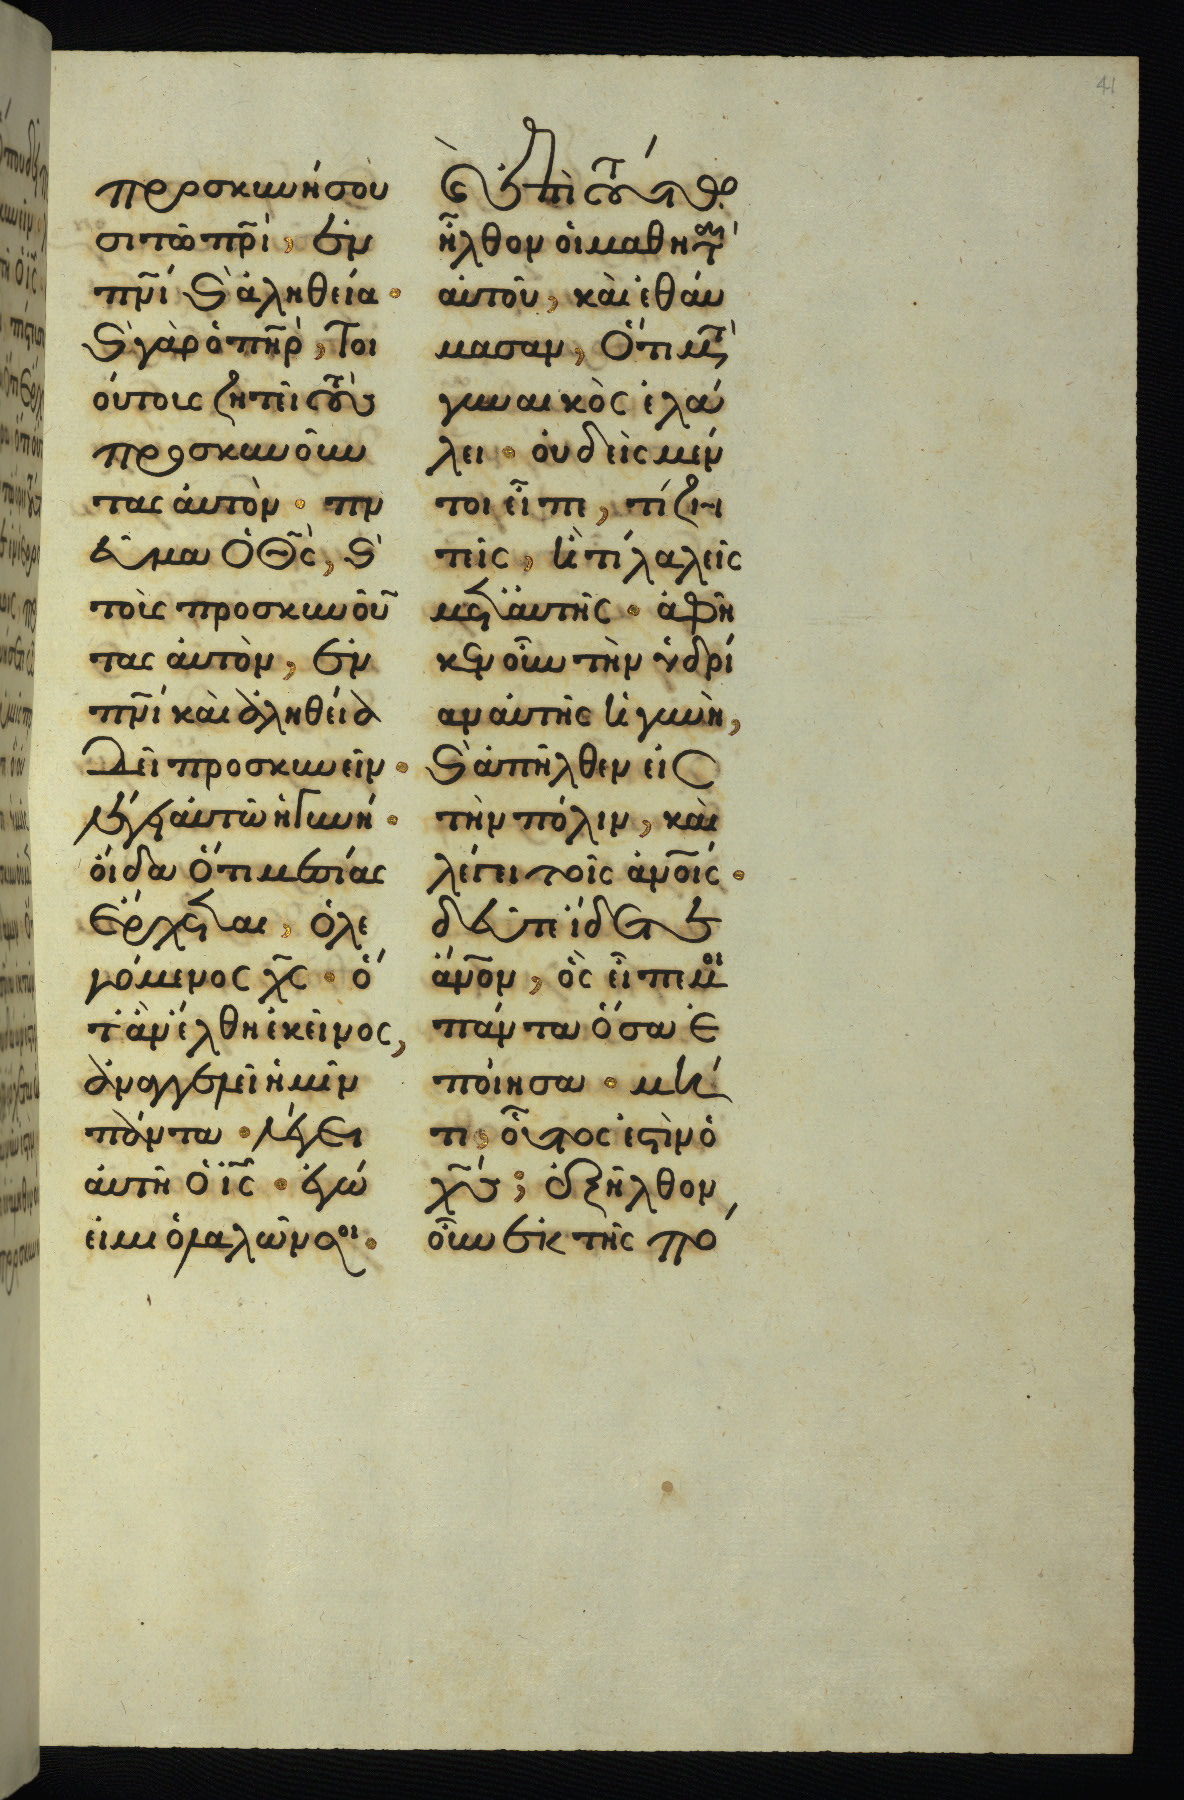 41
προσκυνήσου
σι τῶ πρι̅, ἐν
πνι̅ κ̀ ἀληθεία·
κ̀ γὰρ ὁ πηρ̅, τοι
ούτους ζητεῖ τοὺς
προσκυνοῦν
τας ἀυτὸν· πν
εῦμα ὁ θς̅, κ̀
τοὺς προσκυνοῦ
τας ἀυτὸν, ἐν
πνι̅ καὶ ἀληθεία
δεῖ προσκυνεῖν·
λέγει ἀυτῶ ἡ γυνή·
οἶδα ὅτι μεσίας
ἔρχεται, ὁ λε
γόμενος χς̅· ὅ
τὰν ἔλθη ἐκεῖνος,
ἀναγγελεῖ ἡμῖν
πάντα· λέγει
ἀυτῆ ὁ ις̅· ἐγώ
εἰμι ὁ λαλῶν σοι·
κ̀ ἐπὶ τούτω
ἦλθον οἱ μαθητ
ἀυτοῦ, καὶ ἐθαύ
μασαν, ὅτι μετὰ
γυναικὸς ἐλά
λει· ὀυδεὶς μέν
τοι εἶπε, τί ζη
τεῖς, ἢ τί λαλεῖς
μετ ἀυτῆς· ἀφῆ
κεν οὖν τὴν ὑδρί
αν ἀυτῆς ἡ γυνὴ,
κ̀ ἀπῆλθεν εἰς
τὴν πόλιν, καὶ
λέγει τοῖς ἀνοις̅·
δεῦτε ἴδετε
ἄνον̅, ὃς εἶπέ μοι
πάντα ὅσα ἐ
ποίησα· μή
τι οὗτος ἐστὶν ὁ
χς̅; ἐξῆλθον
οὖν ἐκ τῆς πό